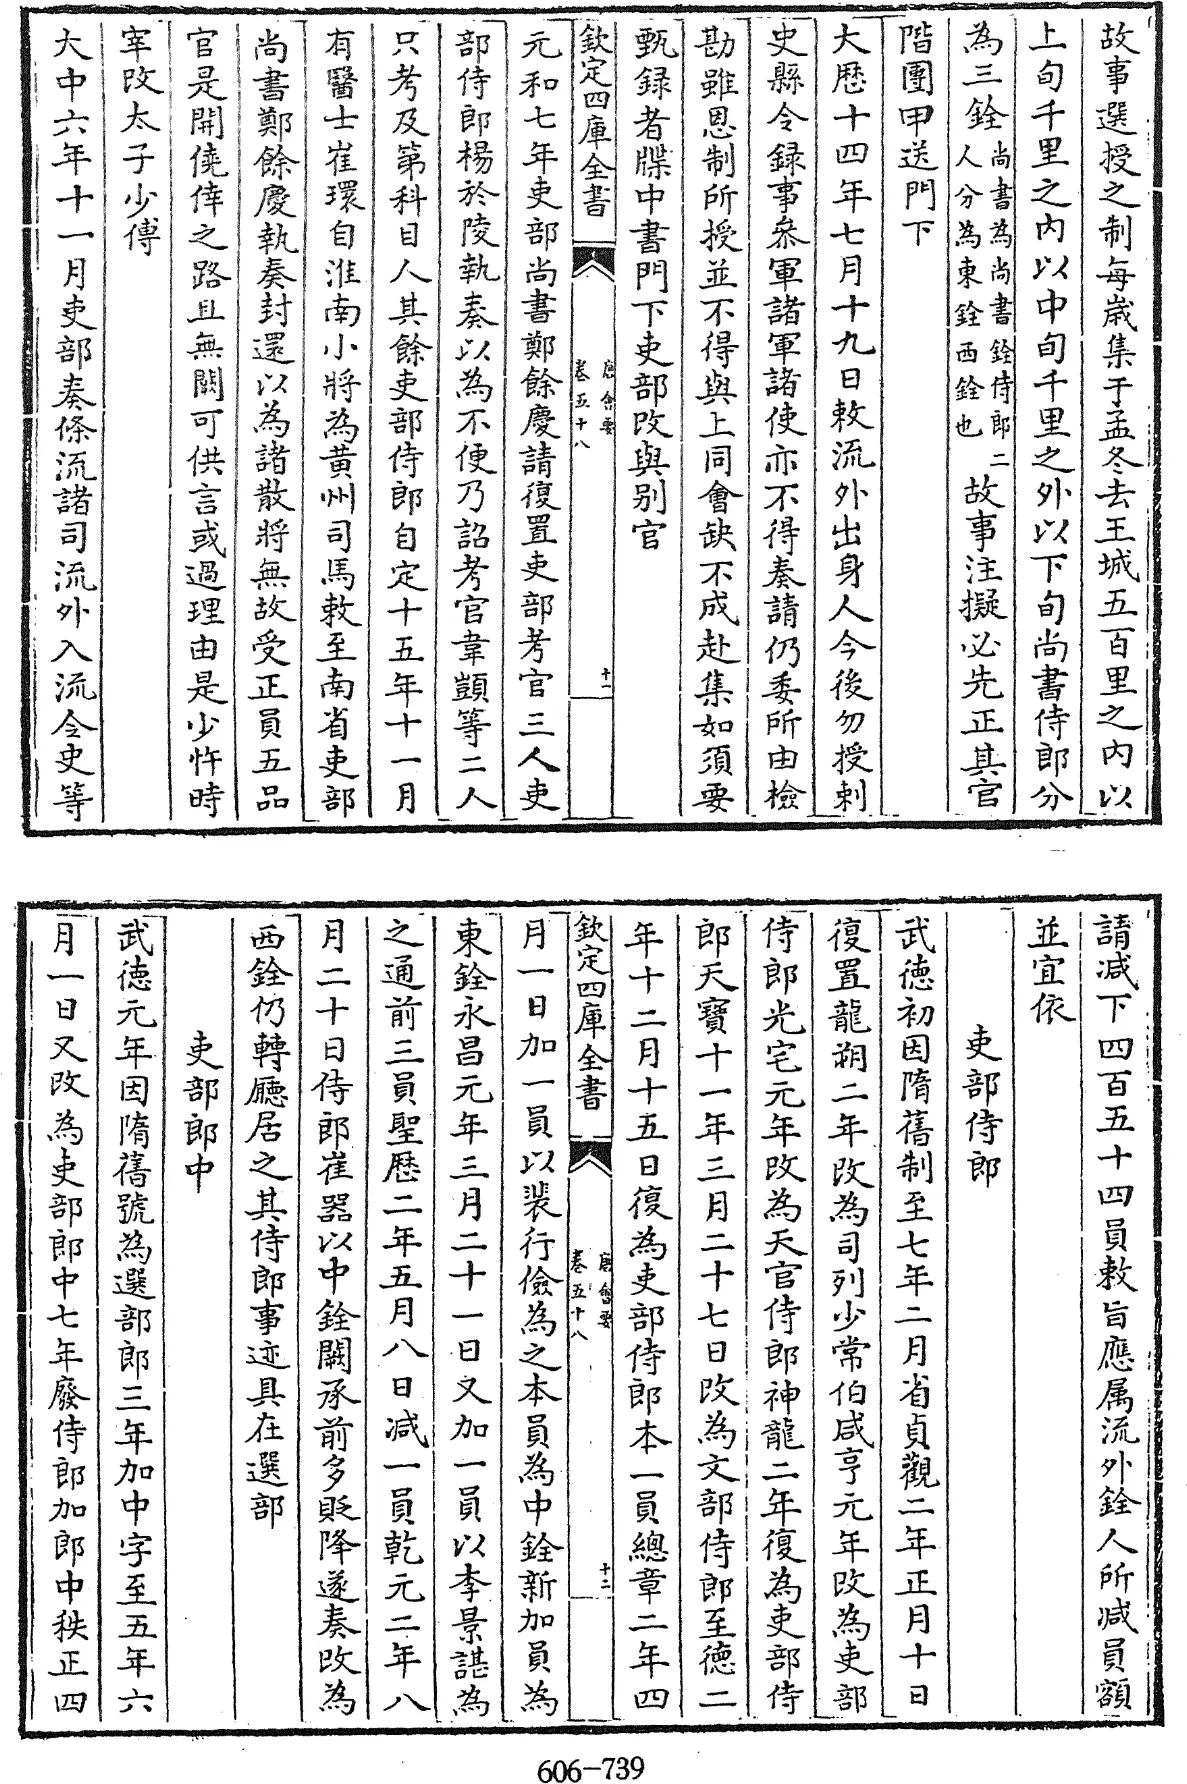 故事選授之制每歳集于孟冬去王城五百里之内以
上旬千里之内以中旬千里之外以下旬尚書侍郎分
為三銓尚書為尚書銓侍郎二人分為東銓西銓也故事注擬必先正其官
階團甲送門下
大厯十四年七月十九日敕流外出身人今後勿授刺
史縣令録事叅軍諸軍諸使亦不得奏請仍委所由檢
勘雖恩制所授並不得與上同會缺不成赴集如須要
甄録者牒中書門下吏部改與别官
欽定四庫全書
唐會要
卷五十八
十一
元和七年吏部尚書鄭餘慶請復置吏部考官三人吏
部侍郎楊於陵執奏以為不便乃詔考官韋顗等二人
只考及第科目人其餘吏部侍郎自定十五年十一月
有醫士崔環自淮南小將為黄州司馬敕至南省吏部
尚書鄭餘慶執奏封還以為諸散將無故受正員五品
官是開僥倖之路且無闕可供言或過理由是少忤時
宰改太子少傅
大中六年十一月吏部奏條流諸司流外入流令史等
請减下四百五十四員敕旨應属流外銓人所减員額
並宜依
吏部侍郎
武德初因隋舊制至七年二月省貞觀二年正月十日
復置龍朔二年改為司列少常伯咸亨元年改為吏部
侍郎光宅元年改為天官侍郎神龍二年復為吏部侍
郎天寶十一年三月二十七日改為文部侍郎至德二
年十二月十五日復為吏部侍郎本一員總章二年四
欽定四庫全書
唐會要
卷五十八
十二
月一日加一員以裴行儉為之本員為中銓新加員為
東銓永昌元年三月二十一日又加一員以李景諶為
之通前三員聖厯二年五月八日减一員乾元二年八
月二十日侍郎崔器以中銓闕承前多貶降遂奏改為
西銓仍轉廳居之其侍郎事迹具在選部
吏部郎中
武德元年因隋舊號為選部郎三年加中字至五年六
月一日又改為吏部郎中七年廢侍郎加郎中秩正四
606-739